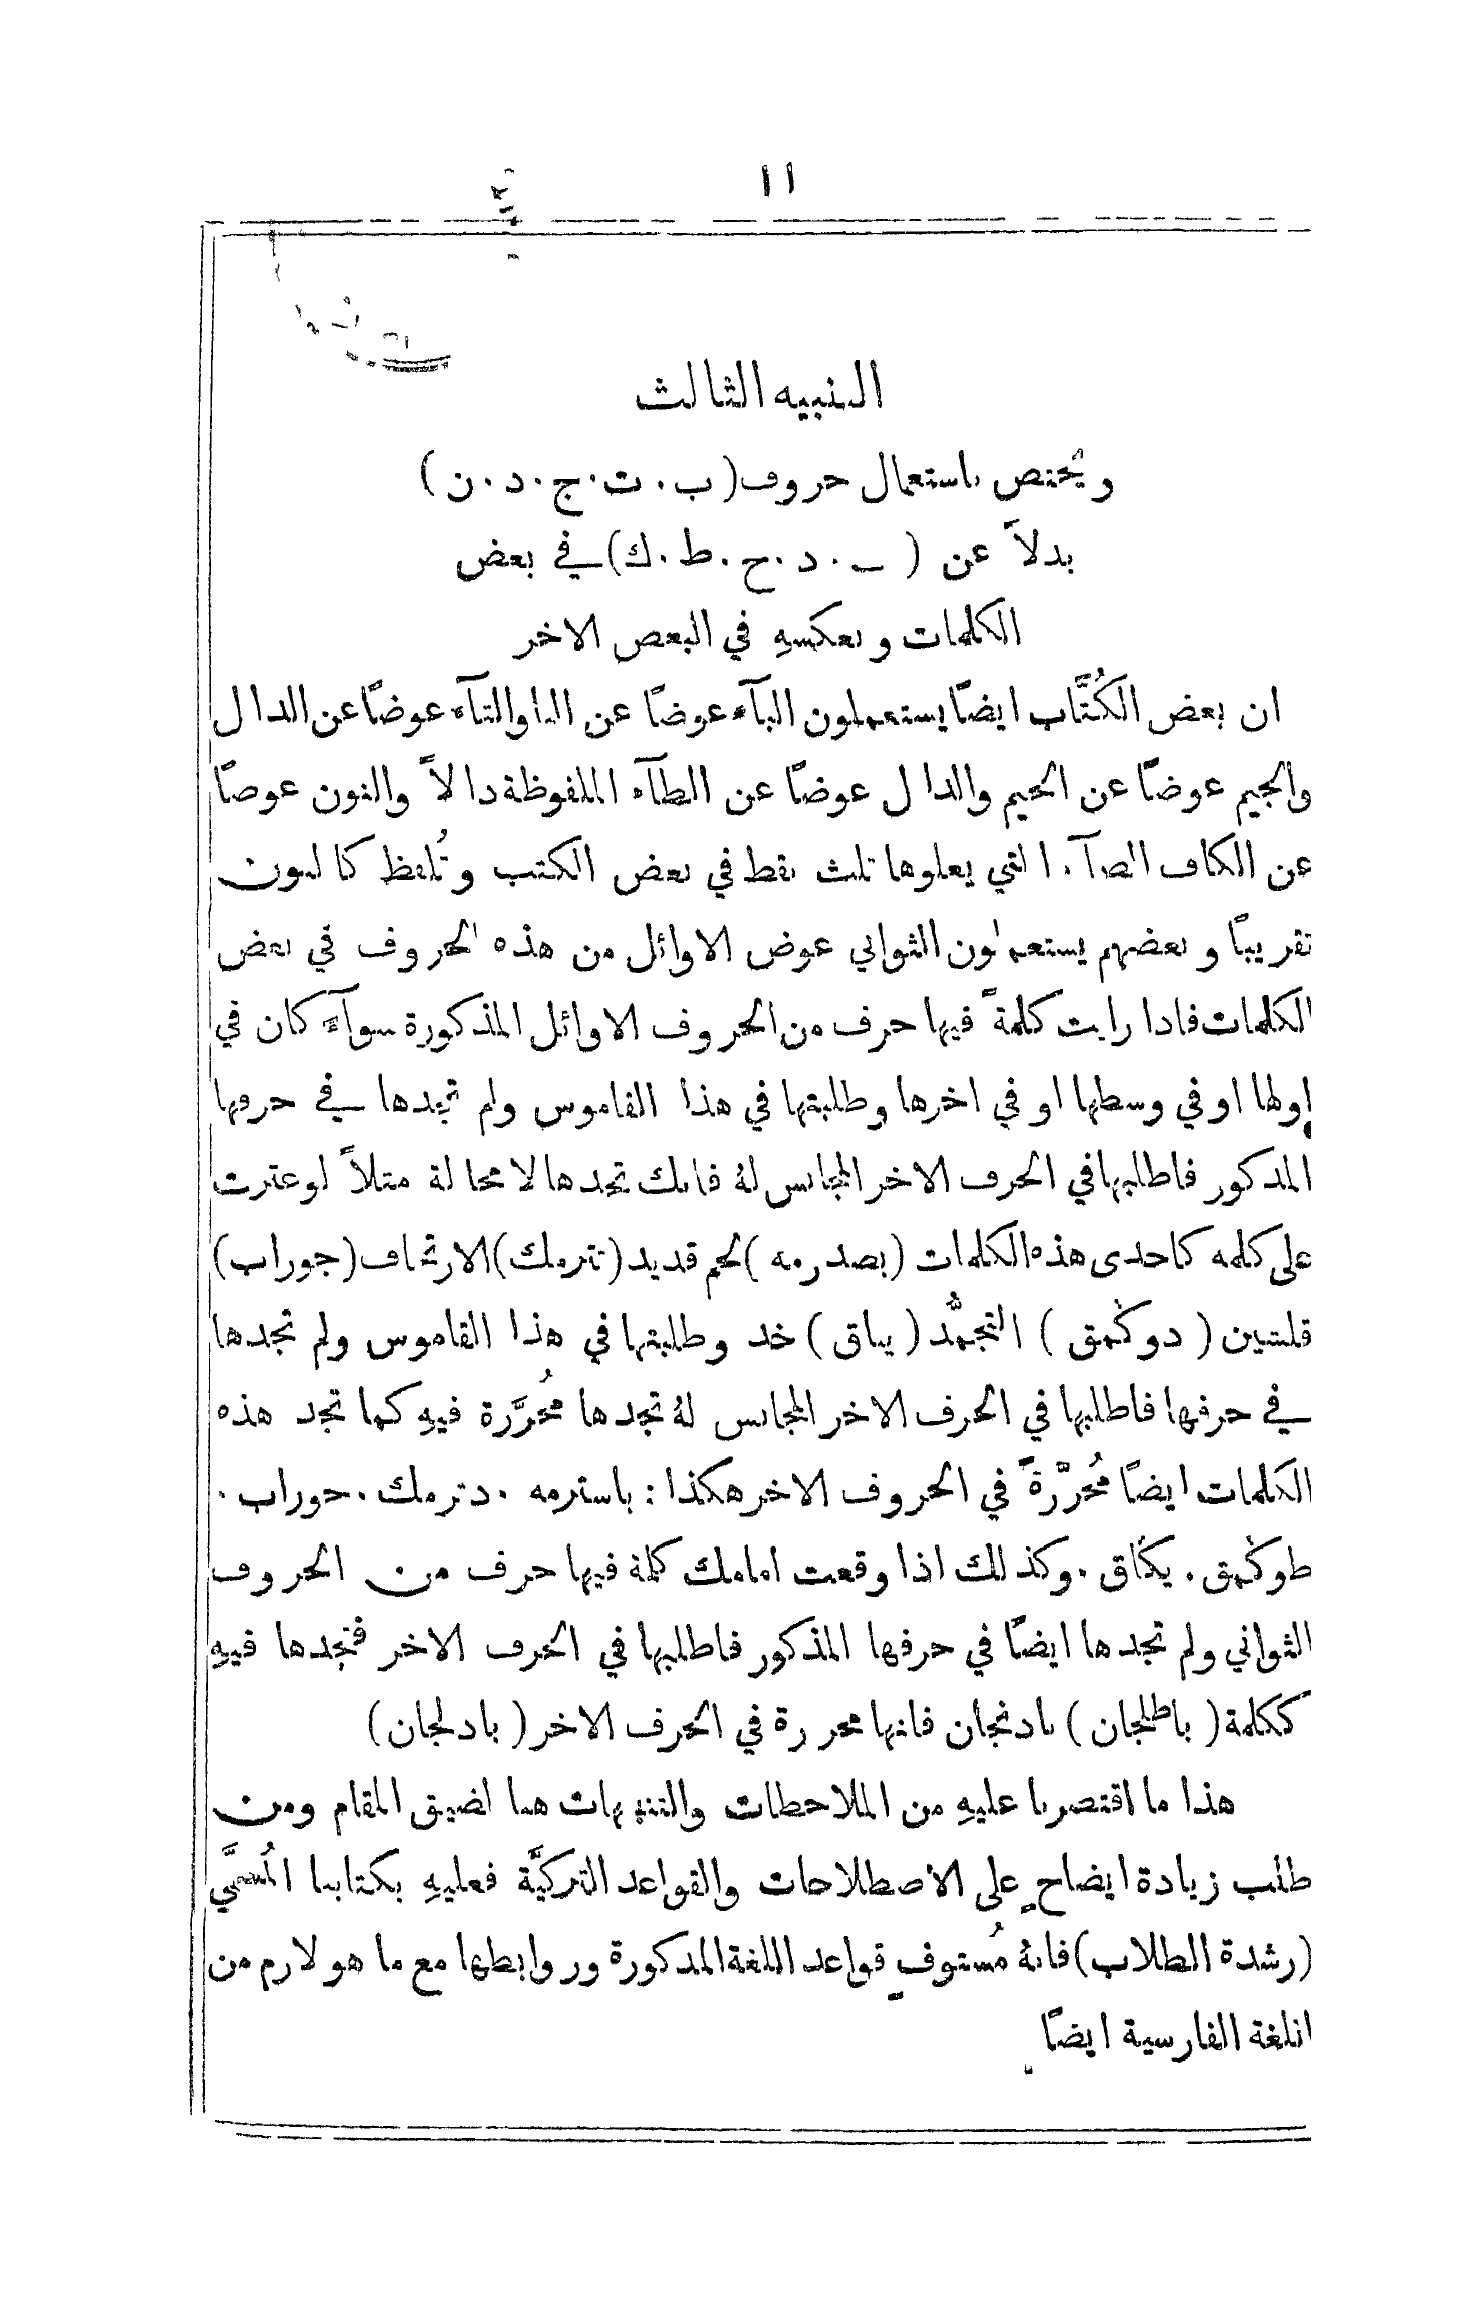 ١١
التنبيه الثالث
ويُختص باستعمال حروف (ب . ت . ج . د . ن)
بدلاً عن ( ــ . د . ح . ط . ك) في بعض
الكلمات وبعكسهِ في البعض الاخر
ان بعض الكُتَّاب ايضًا يستعملون البآء عوضًا عن البا والتآء عوضًا عن الدال
والجيم عوضًا عن الجيم والدال عوضًا عن الطآء الملفوظة دالاً والنون عوضًا
عن الكاف الصآء التي يعلوها ثلث نقط في بعض الكتب وتُلفظ كالنون
تقريبًا وبعضهم يستعملون الثواني عوض الاوائل من هذه الحروف في بعض
الكلمات فاذا رايت كلمةً فيها حرف من الحروف الاوائل المذكورة سوآءً كان في
اولها او في وسطها او في اخرها وطلبتها في هذا القاموس ولم تجدها في حرفها
المذكور فاطلبها في الحرف الاخر المجانس لهُ فانك تجدها لا محالة مثلاً لو عثرت
على كلمه كاحدى هذه الكلمات (بصدرمه) لحم قديد (تترمك) الارتجاف (جوراب)
قلشين (دوكمق) التجمُّد (يباق) خد وطلبتها في هذا القاموس ولم تجدها
في حرفها فاطلبها في الحرف الاخر المجانس لهُ تجدها مُحرَّرة فيهِ كما تجد هذه
الكلمات ايضًا مُحرَّرةً في الحروف الاخر هكذا : باسترمه . دترمك . جوراب .
طوكمق . يكاق . وكذلك اذا وقعت امامك كلمة فيها حرف من الحروف
الثواني ولم تجدها ايضًا في حرفها المذكور فاطلبها في الحرف الاخر فتجدها فيهِ
ككلمة (باطلجان) بادنجان فانها محررة في الحرف الاخر (بادلجان)
هذا ما اقتصرنا عليهِ من الملاحظات والتنبيهات هنا لضيق المقام ومن
طلب زيادة ايضاحٍ على الاصطلاحات والقواعد التركيَّة فعليهِ بكتابنا المُسمَّى
(رشدة الطلاب) فانهُ مُستوفٍ قواعد اللغة المذكورة وروابطها مع ما هو لازم من
اللغة الفارسية ايضًا